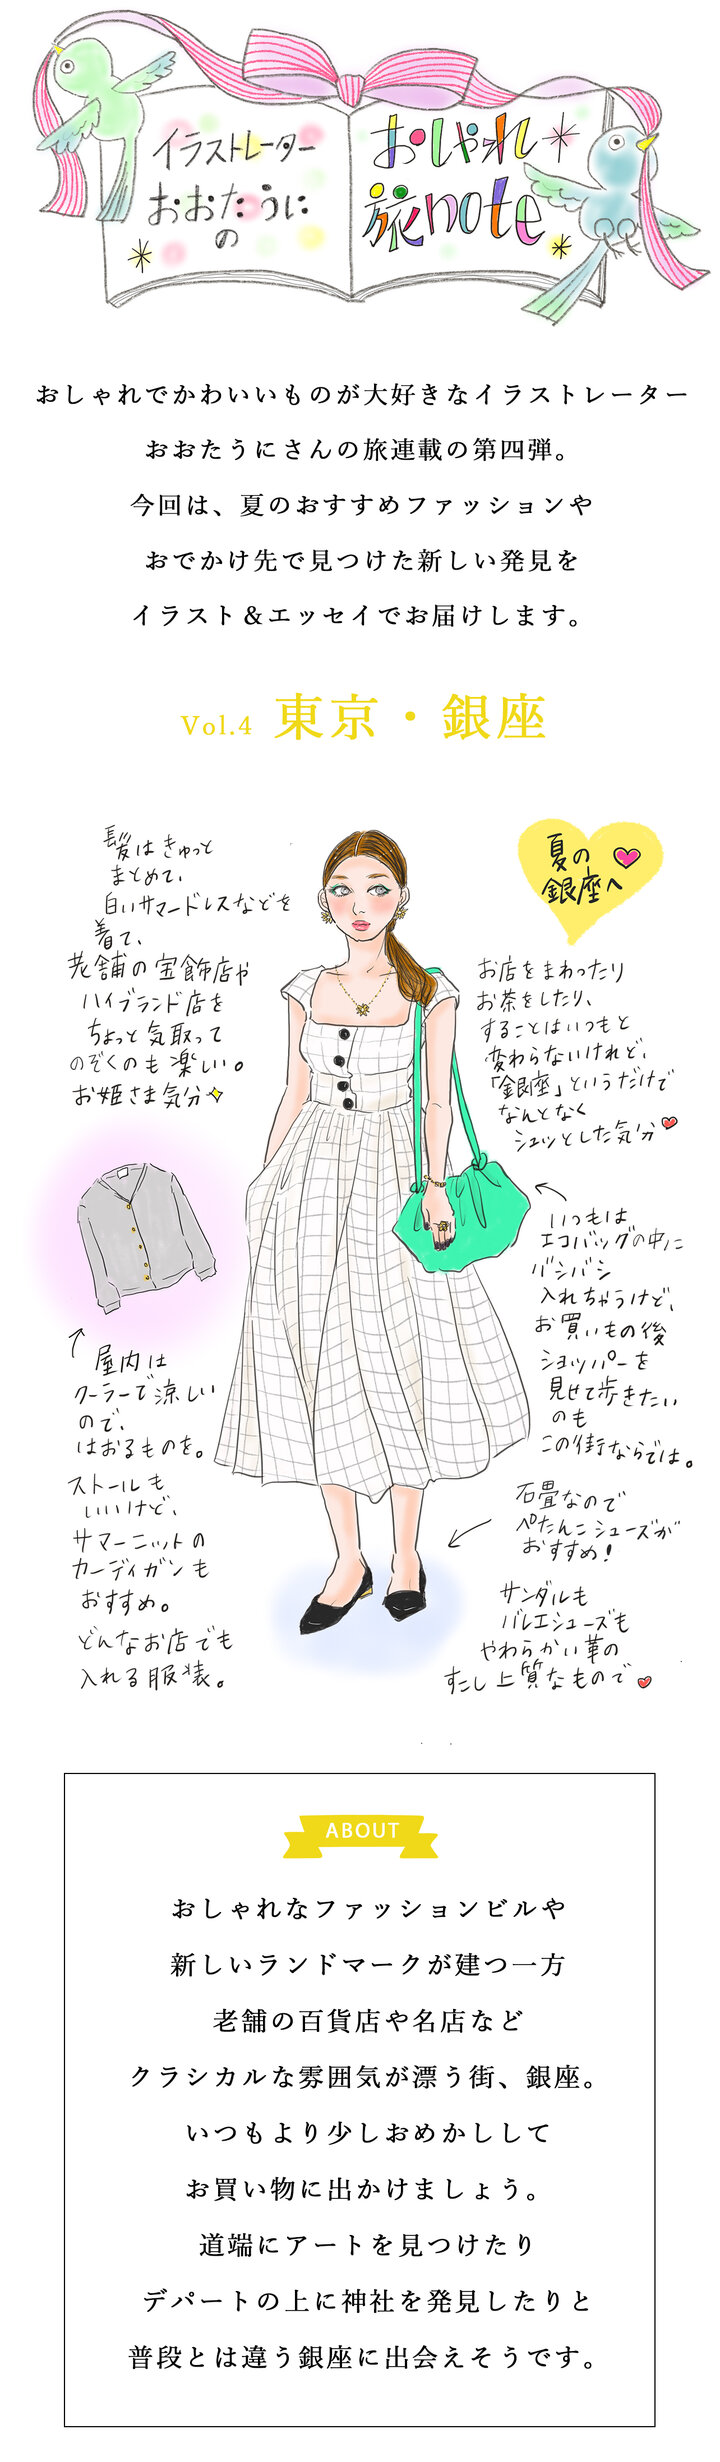 イラストレーター
おおたうに
の
おしゃれ
旅note
おしゃれでかわいいものが大好きなイラストレーター
おおたうにさんの旅連載の第四弾。
今回は、夏のおすすめファッションや
おでかけ先で見つけた新しい発見を
イラスト＆エッセイでお届けします。
Vol.4 東京・銀座
髪はきゅっと
まとめて、
白いサマードレスなどを
着て、
老舗の宝飾店や
ハイブランド店を
ちょっと気取って
のぞくのも楽しい。
お姫さま気分
夏の
銀座へ
お店をまわったり
お茶をしたり、
することはいつもと
変わらないけれど、
「銀座」というだけで
なんとなく
シュッとした気分
いつもは
エコバッグの中に
バシバシ
入れちゃうけど、
お買いもの後
ショッパーを
見せて歩きたい
のも
この街ならでは。
屋内は
クーラーで涼しい
ので、
はおるものを。
ストールも
いいけど、
サマーニットの
カーディガンも
おすすめ。
どんなお店でも
入れる服装。
石畳なので
ぺたんこシューズが
おすすめ!
サンダルも
バレエシューズも
やわらかい革の
すこし上質なもので
ABOUT
おしゃれなファッションビルや
新しいランドマークが建つ一方
老舗の百貨店や名店など
クラシカルな雰囲気が漂う街、銀座。
いつもより少しおめかしして
お買い物に出かけましょう。
道端にアートを見つけたり
デパートの上に神社を発見したりと
普段とは違う銀座に出会えそうです。